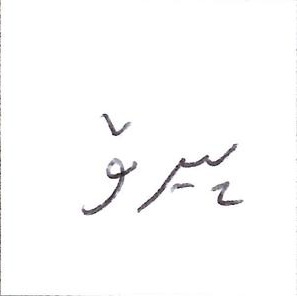 پیرۆ